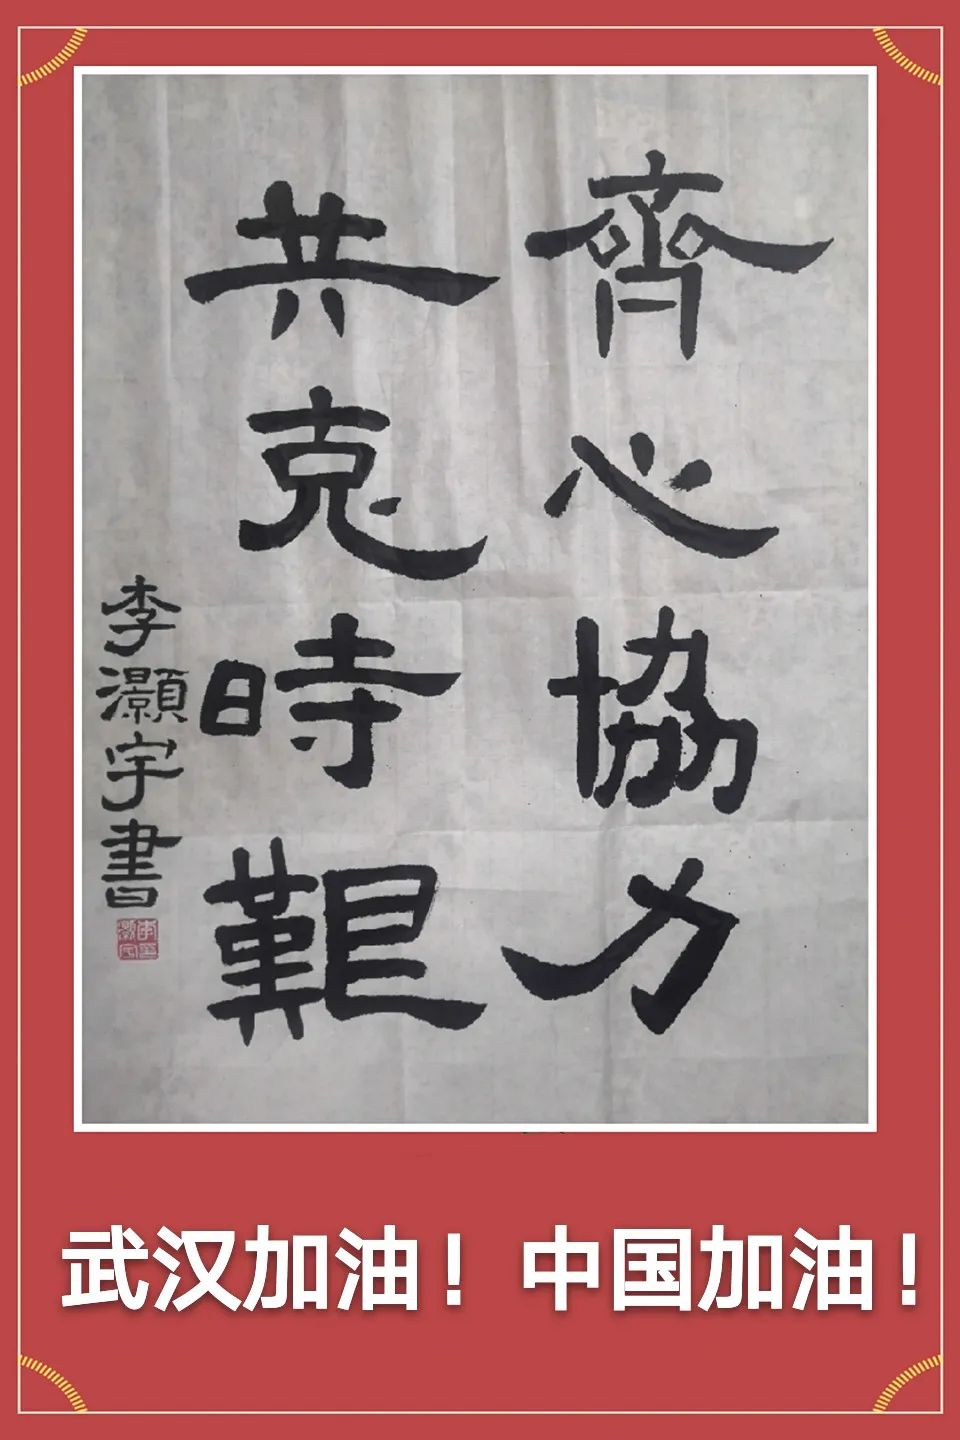 齊心協力
共克時艱
李灝宇書
武汉加油！中国加油！